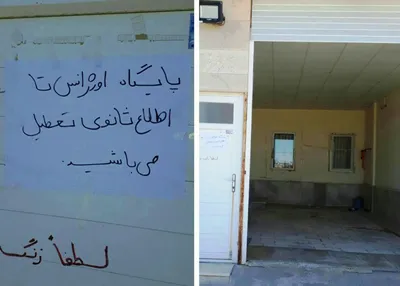 پایگاه اورژانس تا
اطلاع ثانوی تعطیل
می باشید.
لطفاً زنگ